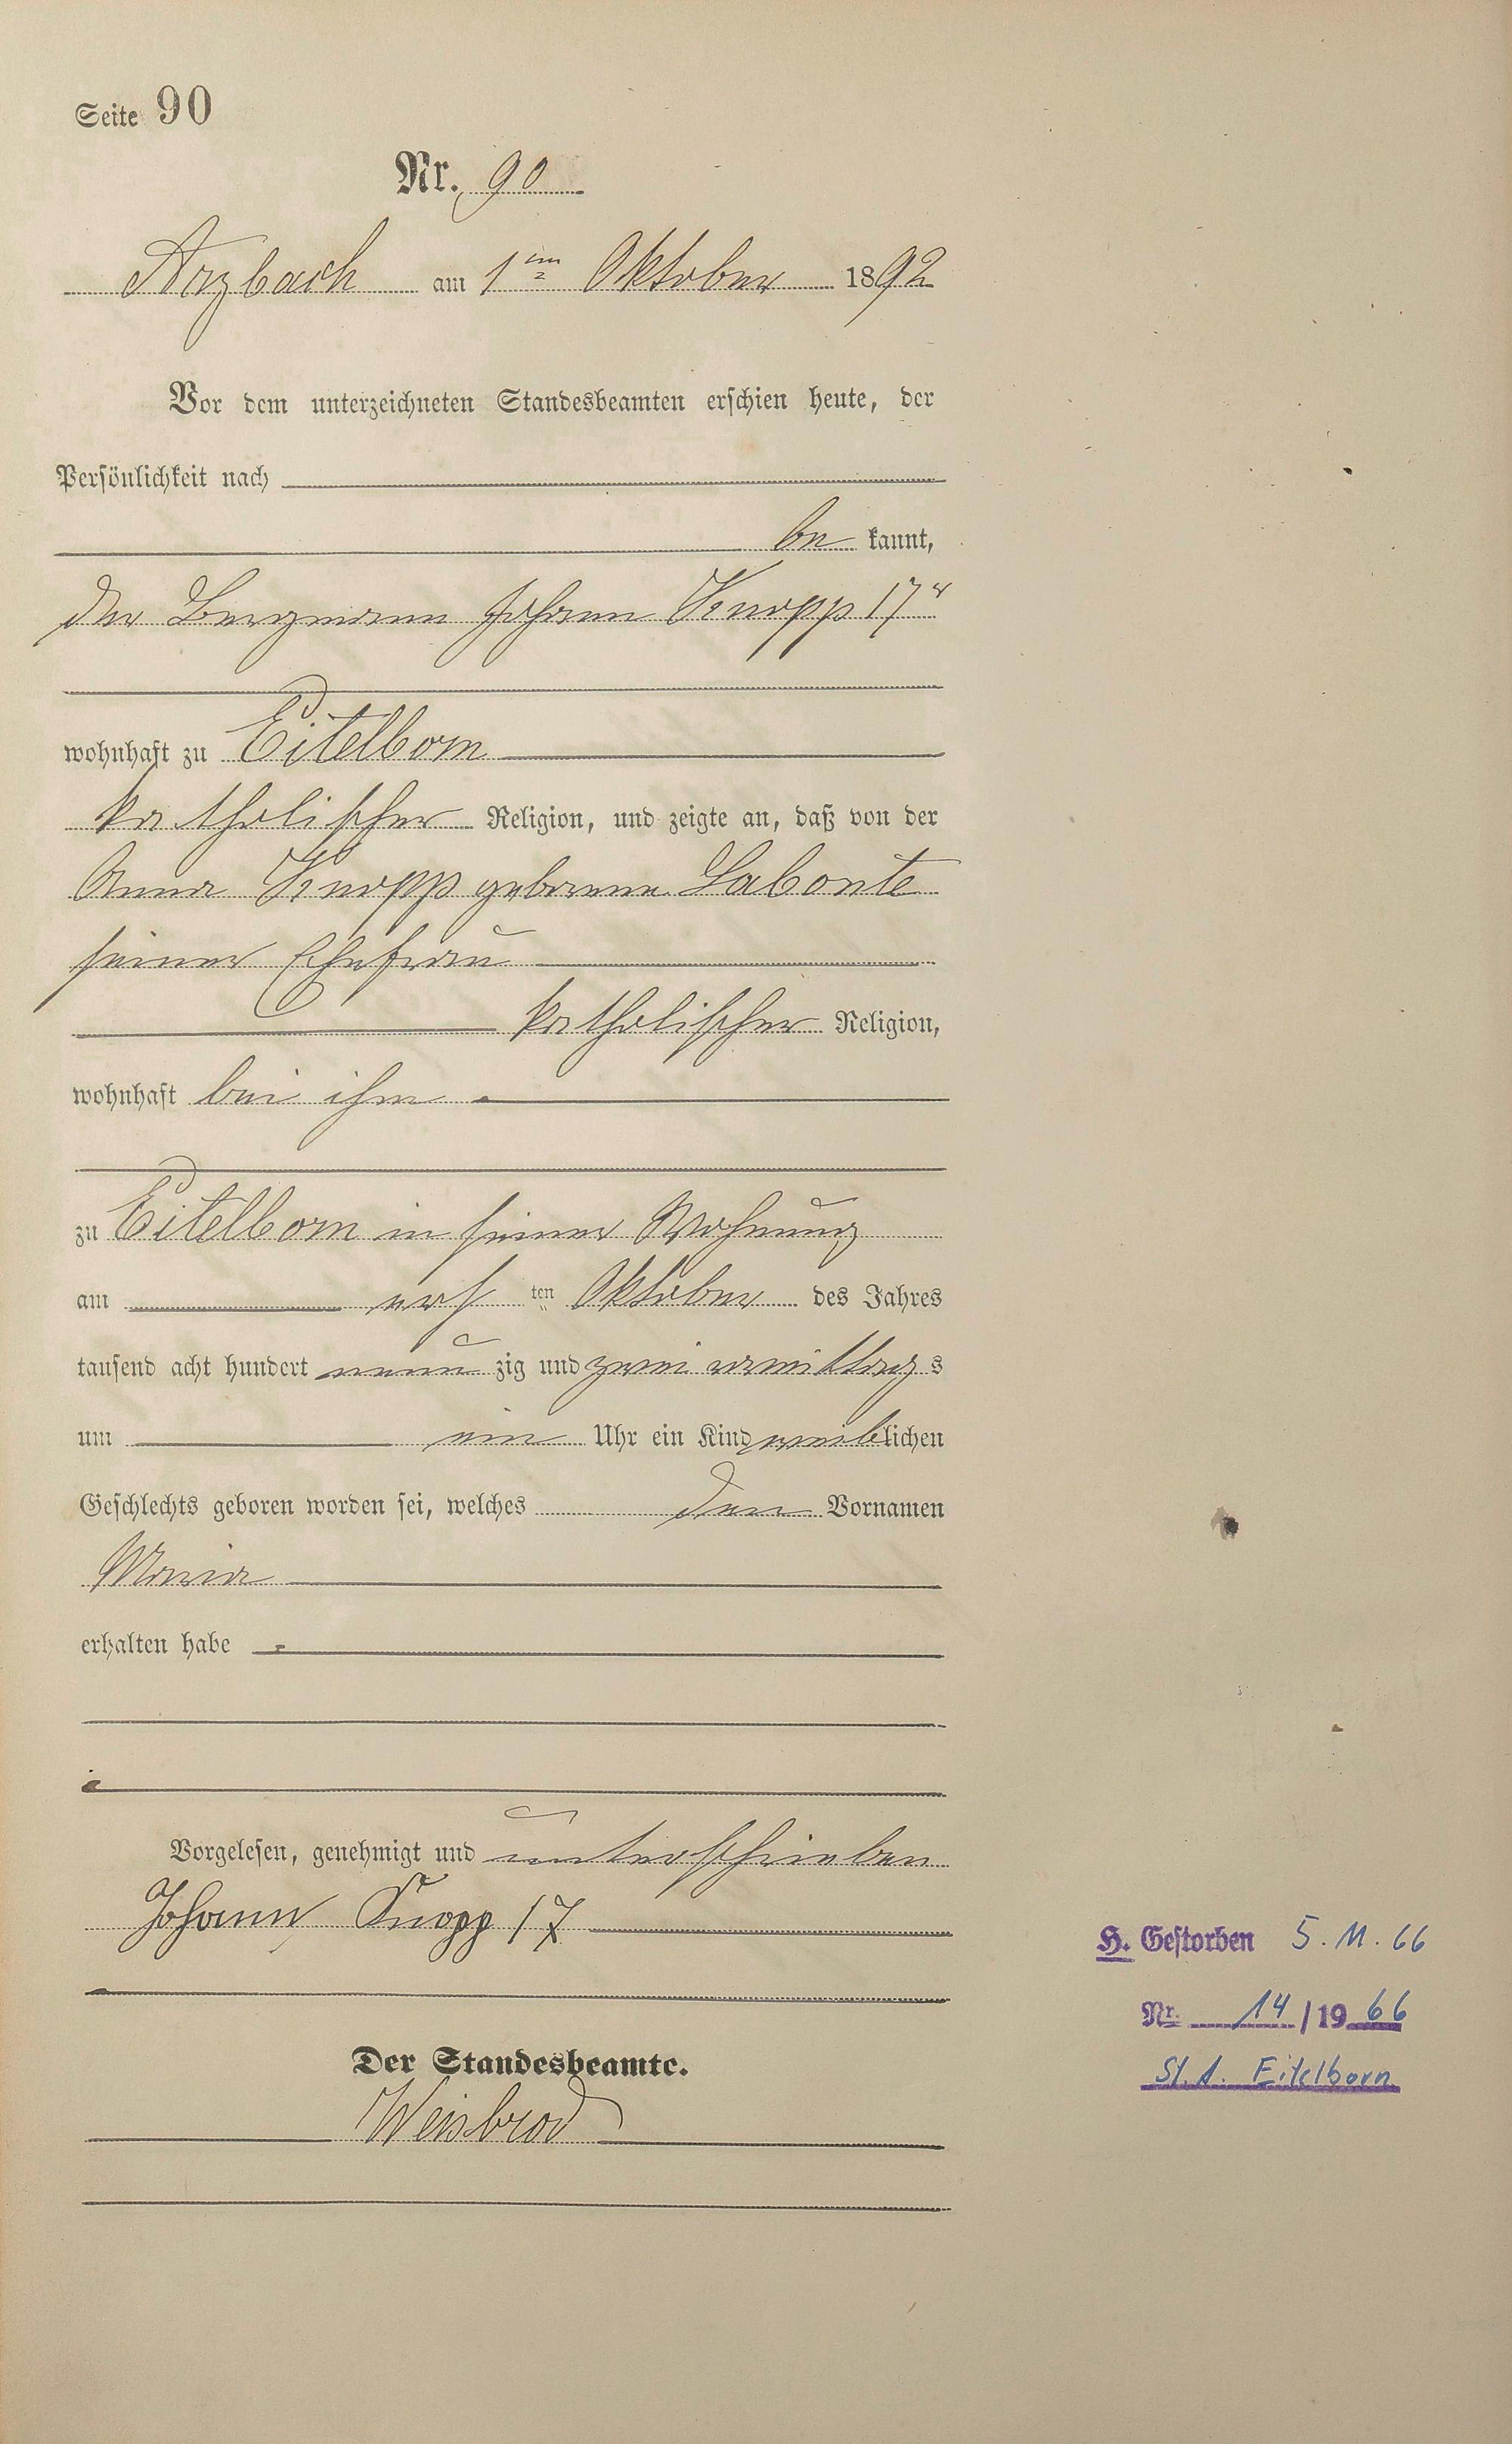 Seite 90
Nr. 90
Arzbach am 1ten Oktober 1892
Vor dem unterzeichneten Standesbeamten erschien heute, der
Persönlichkeit nach
be kannt,
der Bergmann Johann Knopp 17r
wohnhaft zu Eitelborn
katholischer Religion, und zeigte an, daß von der
Anna Knopp geborene Labonte
seiner Ehefrau
katholischer Religion,
wohnhaft bei ihm
zu Eitelborn in seiner Wohnung
am ers ten Oktober des Jahres
tausend acht hundert neun zig und zwei vormittags
um ein Uhr ein Kind weiblichen
Geschlechts geboren worden sei, welches den Vornamen
Maria
erhalten habe
Vorgelesen, genehmigt und unterschrieben
Johann Knopp 17
H. Gestorben 5. 11. 66
Nr. 14/1966
St. A. Eitelborn
Der Standesbeamte.
Weisbrod